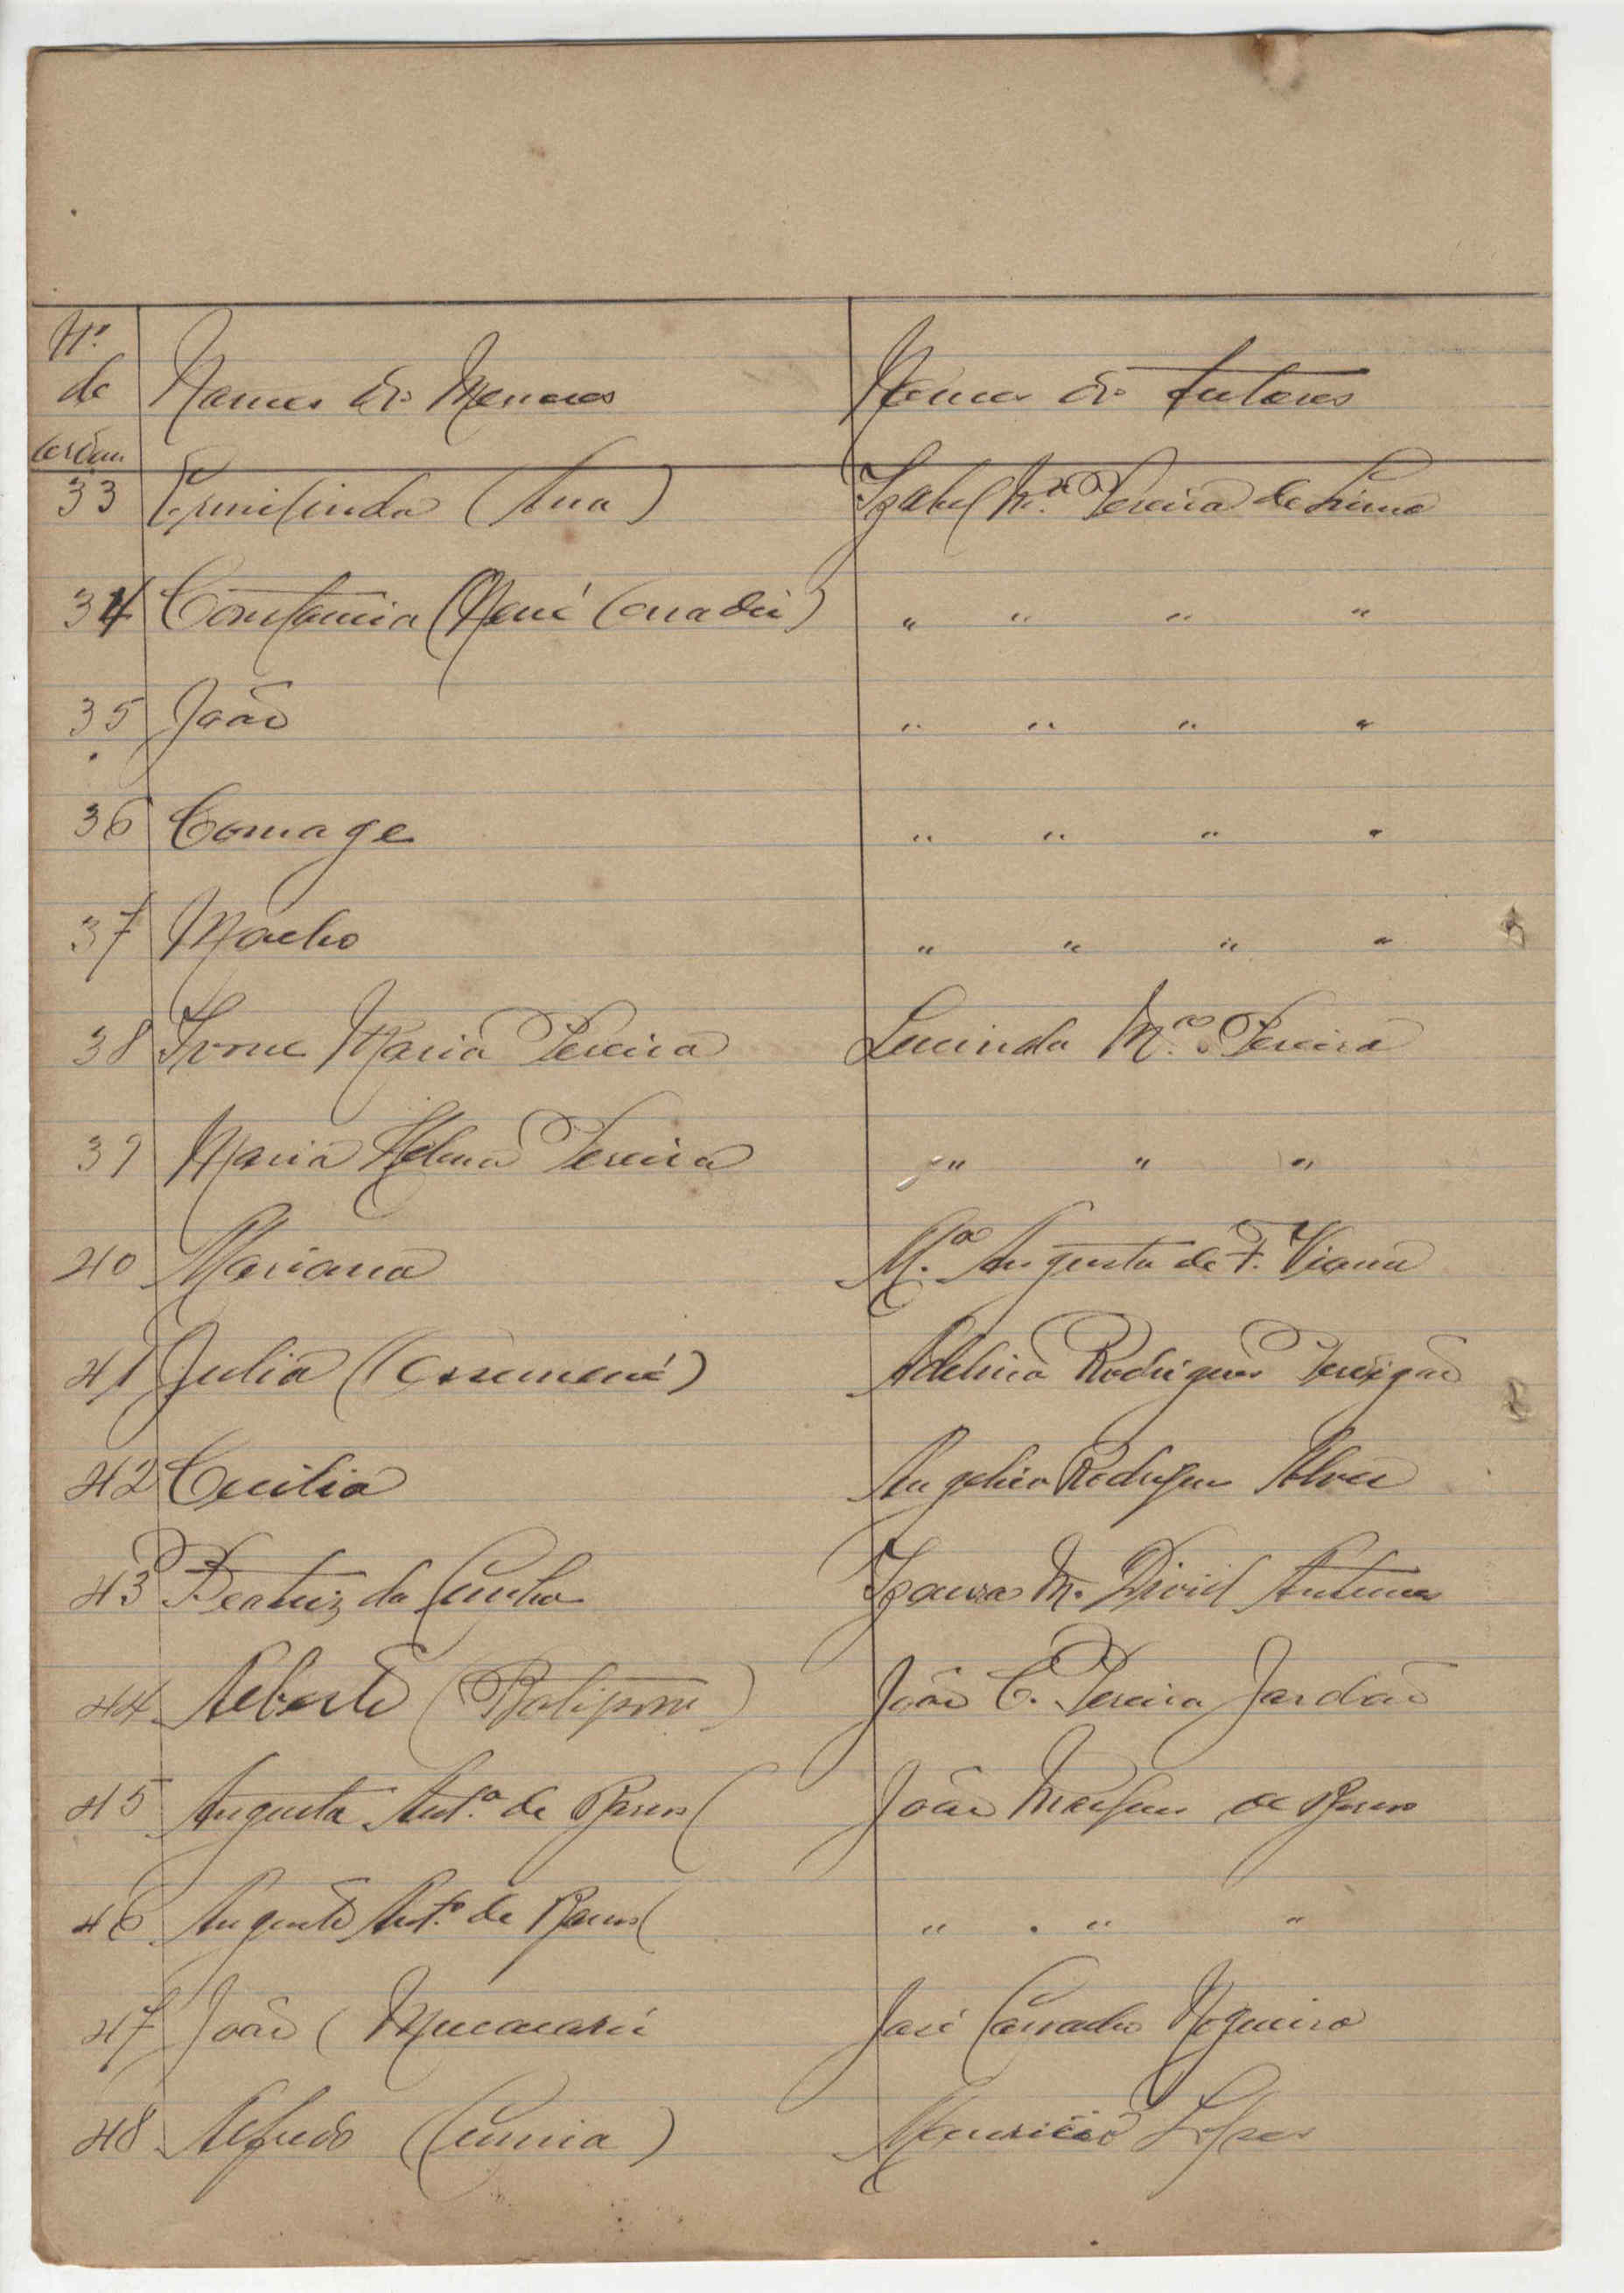 Nº
de Nomes dos Menores Nomes dos tutores
ordem
33 Ermilinda (Ana) Izabel M.ª Pereira de Lima
34 Constancia " " " "
35 João " " " "
36 Comage " " " "
37 Macho " " " "
38 Ivone Maria Pereira Lucinda M.ª Pereira
39 Maria Helena Pereira " " "
40 Mariana M.ª Augusta de F. Viana
41 Julia Adelina Rodrigues
42 Cecilia Angelica Rodrigues Alves
43 Beatriz da Cunha Izaura M. David Antunes
44 Alberto João C. Pereira Jardão
45 Augusta Ant.ª de Barros ( João Marques de Barros
46 Augusto Ant.º de Barros ( " " "
47 João ( José Nogueira
48 Alfredo Mauricio Lopes